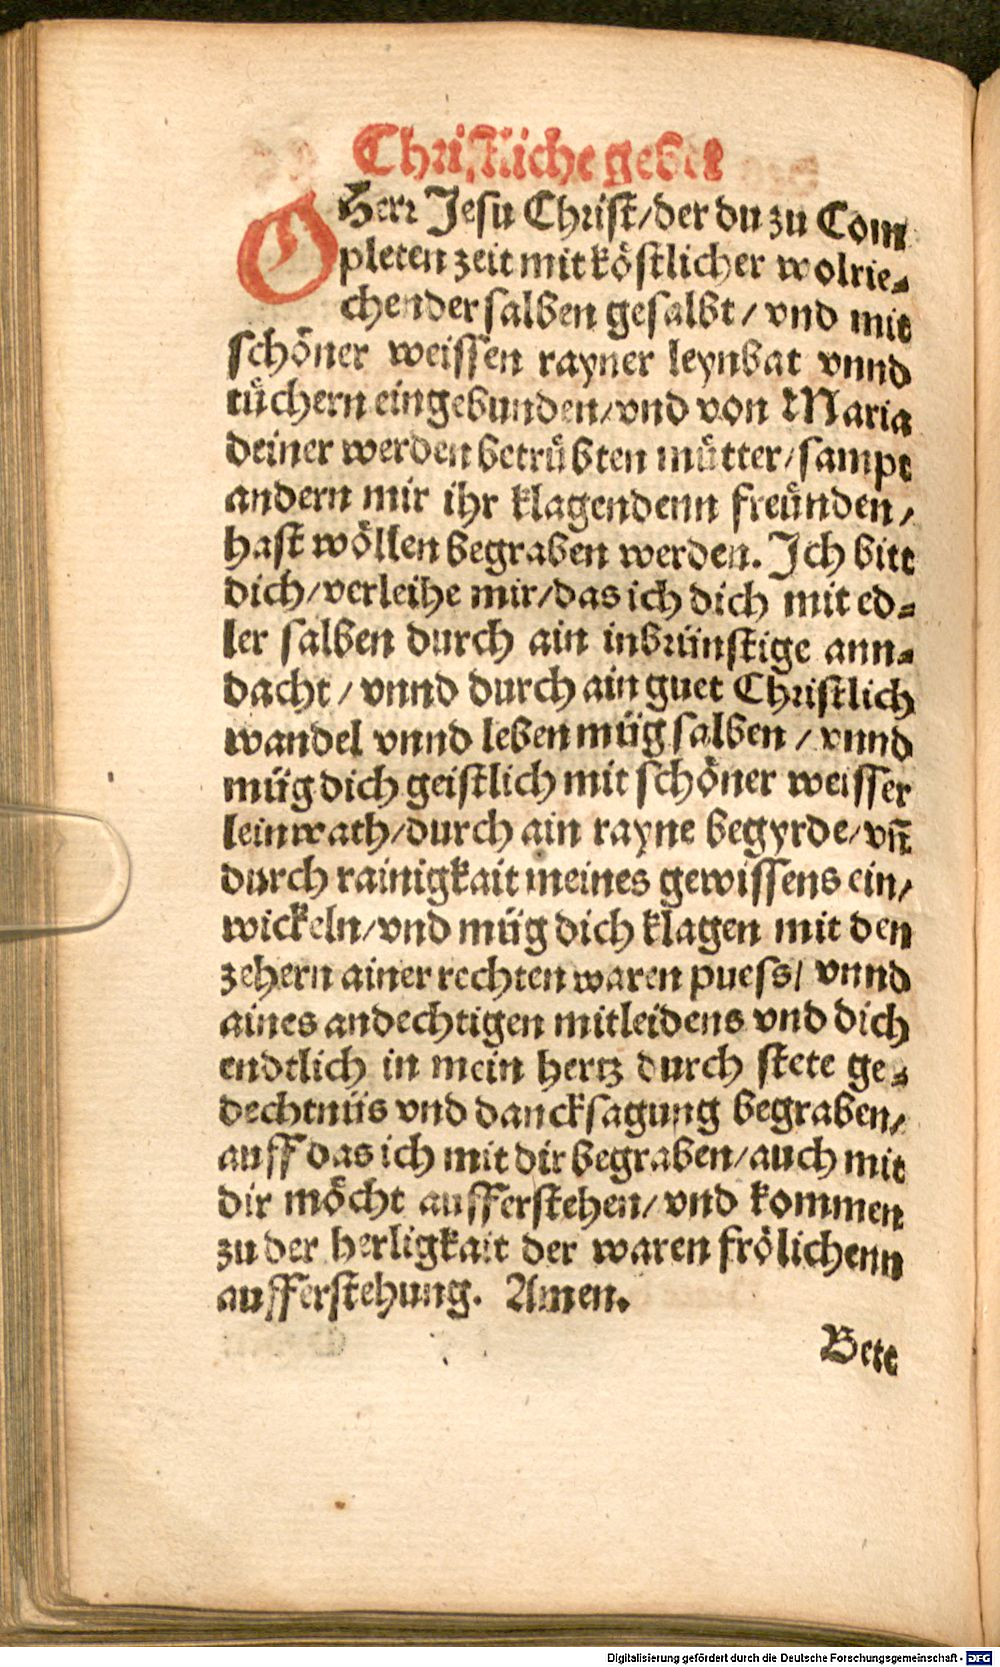 Christliche gebet
O Herr Jesu Christ/ der du zu Com
pleten zeit mit köstlicher wolrie-
chender salben gesalbt/ vnd mit
schöner weissen rayner leynbat vnnd
tüchern eingebunden/ vnd von Maria
deiner werden betrübten mütter/ sampt
andern mir ihr klagendenn freünden/
hast wöllen begraben werden. Ich bitt
dich/ verleihe mir/ das ich dich mit ed-
ler salben durch ain inbrünstige ann-
dacht/ vnnd durch ain guet Christlich
wandel vnnd leben müg salben/ vnnd
müg dich geistlich mit schöner weisser
leinwath/ durch ain rayne begyrde/ vn̄
durch rainigkait meines gewissens ein/
wickeln/ vnd müg dich klagen mit den
zehern ainer rechten waren puess/ vnnd
aines andechtigen mitleidens vnd dich
endtlich in mein hertz durch stete ge-
dechtnüs vnd dancksagung begraben/
auff das ich mit dir begraben/ auch mit
dir möcht aufferstehen/ vnd kommen
zu der herligkait der waren frölichenn
aufferstehung. Amen.
Bete
Digitalisierung gefördert durch die Deutsche Forschungsgemeinschaft - DFG